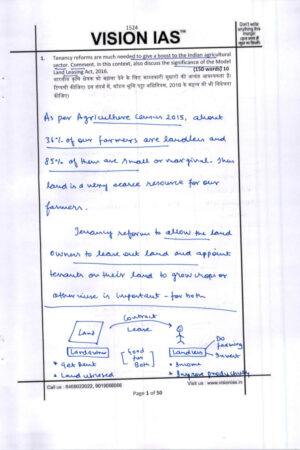 1524
VISION IAS™
Don't write anything this margin
1. Tenancy reforms are much needed to give a boost to the Indian agricultural
sector. Comment. In this context, also discuss the significance of the Model
Land Leasing Act, 2016. (150 words) 10
As per Agriculture Census 2015, about
36% of our farmers are landless and
85% of them are small or marginal. Thus
land is a very scarce resource for our
farmers.
Tenancy reforms to allow the land
owners to lease out land and appoint
tenants on their land to grow crops or
otherwise is important - for both
Contract
LAND
Lease
Landowner
Good for Both
Landless
Do farming
Invest
* Get Rent
* Income
* Land utilised
* Improve productivity
Call us : 8468022022, 9019066066
Visit us : www.visionias.in
Page 1 of 50